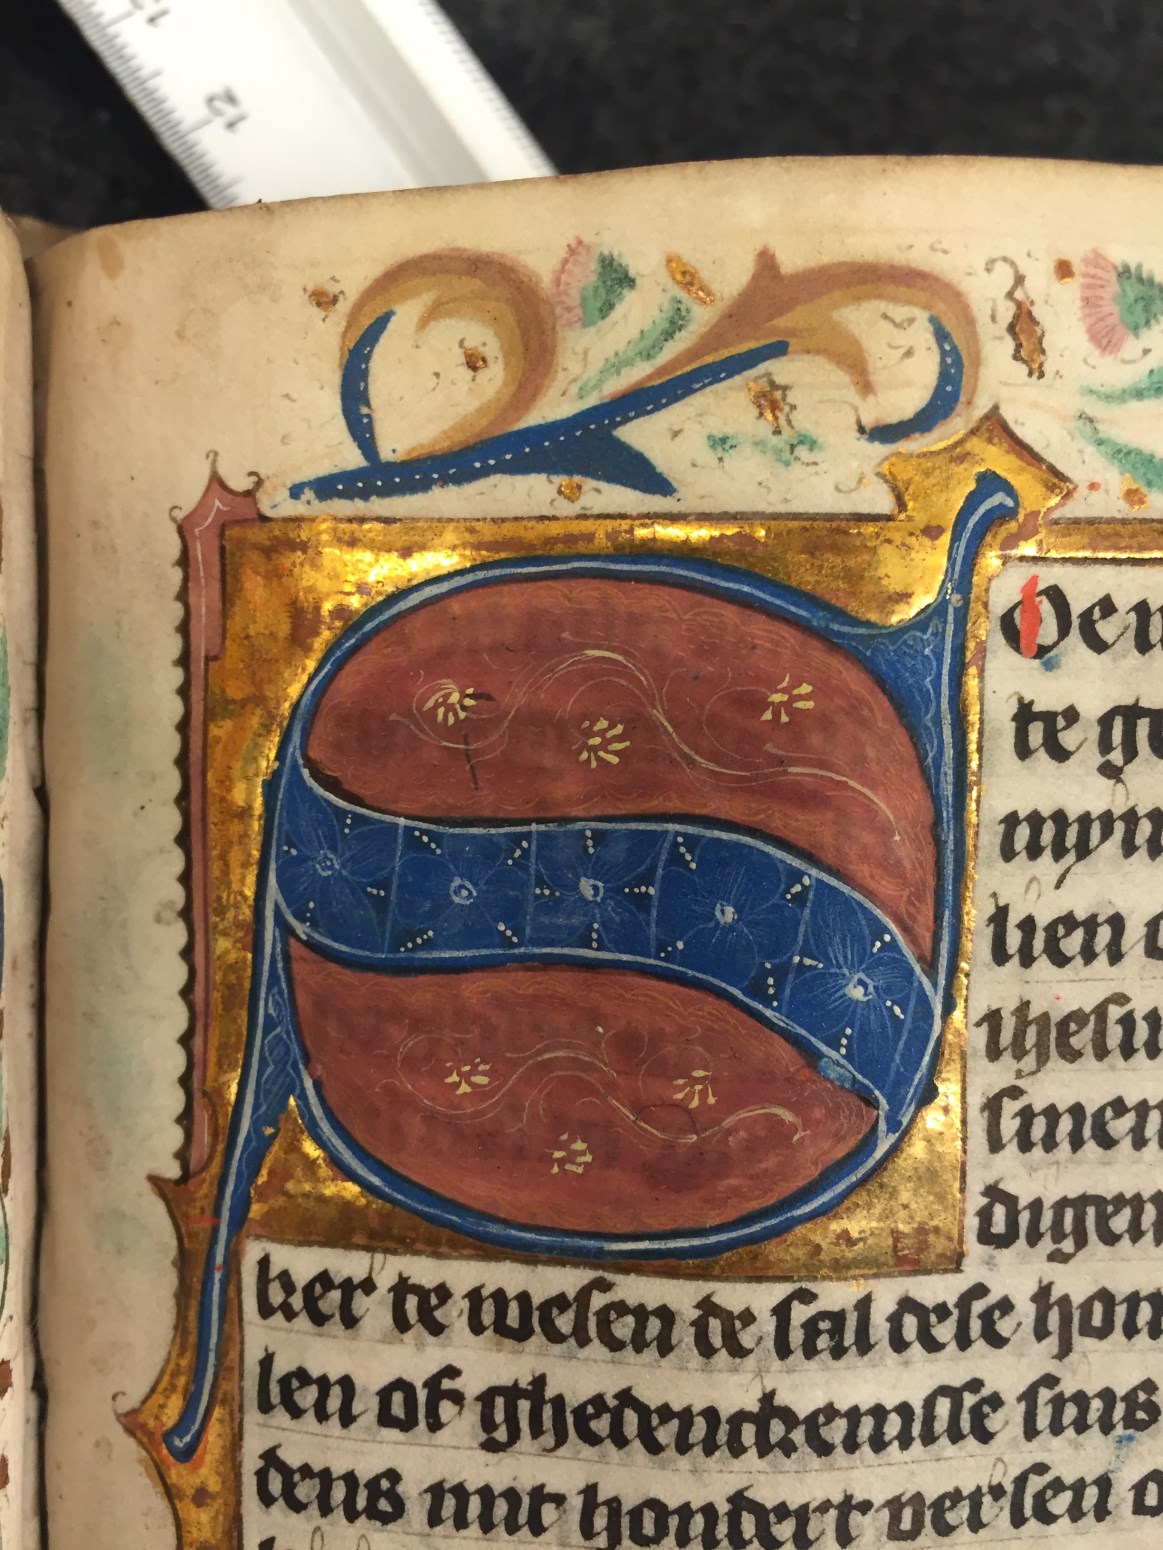 13
12
S
Oen
te ge
myn
lien
ihesu
smen
digen
ker te wesen de sal dese hon
len of ghedenckenisse sins
dens mit hondert versen o